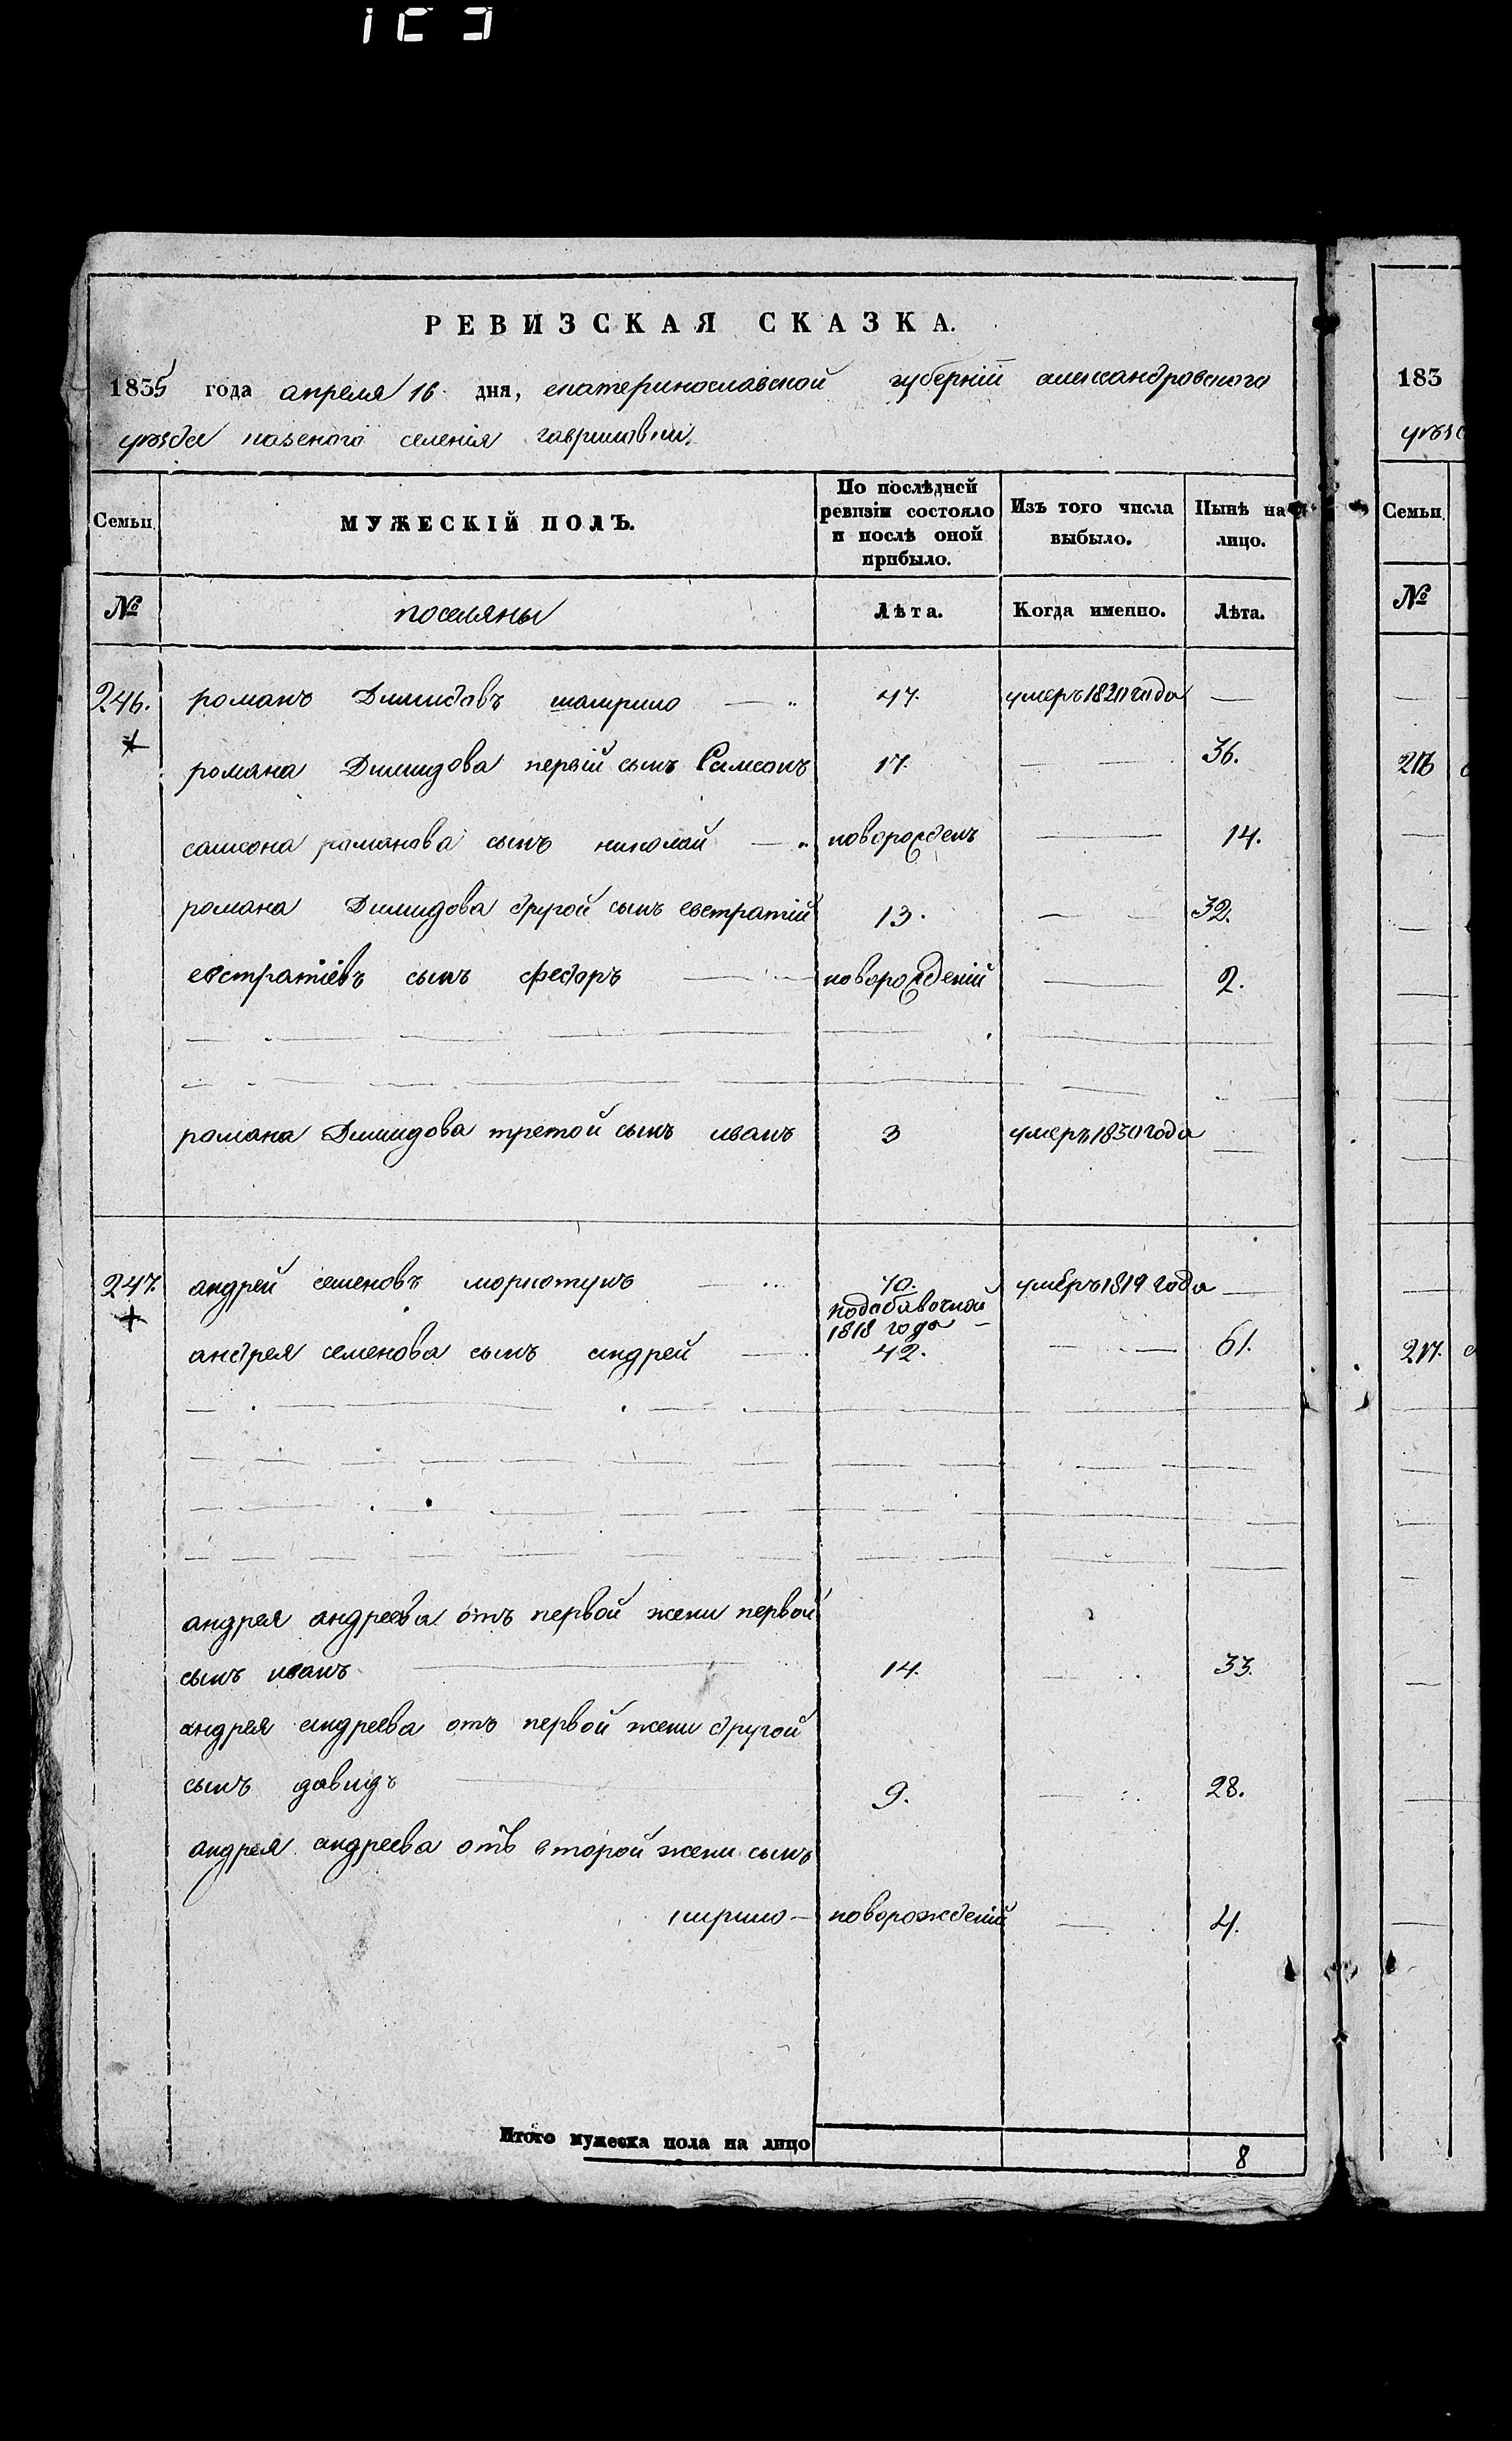 РЕВИЗСКАЯ СКАЗКА.
1835 года апреля 16 дня, екатеринославской губернiй александровского
уѣзда казеного селенiя гавриловки.
Семьи
МУЖЕСКІЙ ПОЛЪ.
По послѣдней ревизіи состояло и послѣ оной прибыло.
Изъ того числа выбыло.
Нынѣ на лицо.
№ поселяны Лѣта. Когда именно. Лѣта.
246. романъ Димидовъ 47. умеръ 1820 года —
романа Димидова первiй сынъ Самсонъ 17. — — 36.
самсона романова сынъ николай — новорожденъ — 14.
романа Димидова другой сынъ евстратiй 13. — — 32.
евстратiевъ сынъ федоръ — новорожденiй — 2.
романа Димидова третой сынъ иванъ 3 умеръ 1830 года —
247. андрей семеновъ моркотунъ — 70. умеръ 1819 года —
подобавочной
1818 года
андрея семенова сынъ андрей — 42. — — 61.
андрея андреева отъ первой жени первой
сынъ иванъ — 14. — 33.
андрея андреева отъ первой жени другой
сынъ давидъ — 9. — 28.
андрея андреева отъ второй жени сынъ
— новорожденiй — 4.
Итого мужеска пола на лицо 8
183
уѣзд
Семьи
№
246
247.